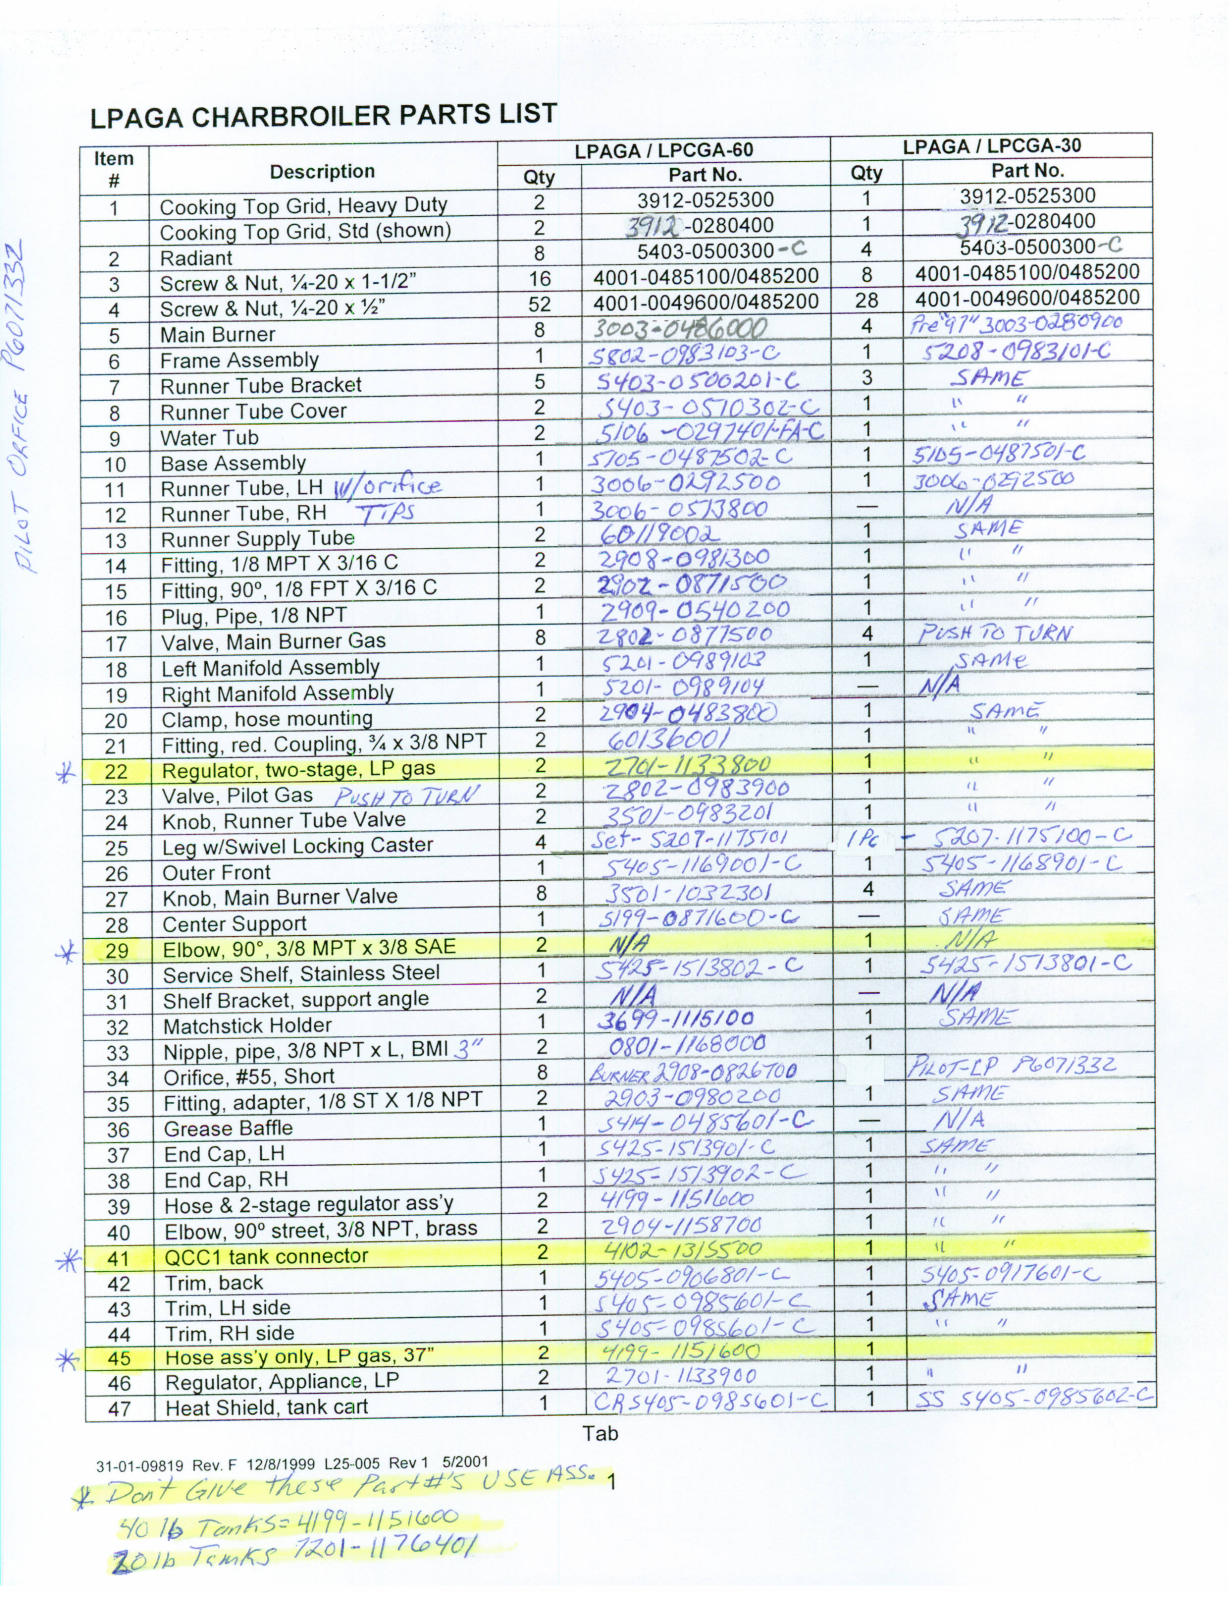 LPAGA CHARBROILER PARTS LIST
Item # Description LPAGA / LPCGA-60 LPAGA / LPCGA-30
Qty Part No. Qty Part No.
1 Cooking Top Grid, Heavy Duty 2 3912-0525300 1 3912-0525300
Cooking Top Grid, Std (shown) 2 3912-0280400 1 3912-0280400
2 Radiant 8 5403-0500300-C 4 5403-0500300-C
3 Screw & Nut, ¼-20 x 1-1/2” 16 4001-0485100/0485200 8 4001-0485100/0485200
4 Screw & Nut, ¼-20 x ½” 52 4001-0049600/0485200 28 4001-0049600/0485200
5 Main Burner 8 3003-0486000 4 Pre "97" 3003-0280900
6 Frame Assembly 1 5802-0983103-C 1 5208-0983101-C
7 Runner Tube Bracket 5 5403-0500201-C 3 SAME
8 Runner Tube Cover 2 5403-0510302-C 1 " "
9 Water Tub 2 5106-0297401-FA-C 1 " "
10 Base Assembly 1 5705-0487502-C 1 5105-0487501-C
11 Runner Tube, LH w/orifice 1 3006-0292500 1 3006-0292500
12 Runner Tube, RH TIPS 1 3006-0573800 — N/A
13 Runner Supply Tube 2 60119002 1 SAME
14 Fitting, 1/8 MPT X 3/16 C 2 2908-0981300 1 " "
15 Fitting, 90º, 1/8 FPT X 3/16 C 2 2902-0871500 1 " "
16 Plug, Pipe, 1/8 NPT 1 2909-0540200 1 " "
17 Valve, Main Burner Gas 8 2802-0877500 4 PUSH TO TURN
18 Left Manifold Assembly 1 5201-0989103 1 SAME
19 Right Manifold Assembly 1 5201-0989104 — N/A
20 Clamp, hose mounting 2 2904-0483800 1 SAME
21 Fitting, red. Coupling, ¾ x 3/8 NPT 2 60136001 1 " "
* 22 Regulator, two-stage, LP gas 2 2701-1133800 1 " "
23 Valve, Pilot Gas PUSH TO TURN 2 2802-0983900 1 " "
24 Knob, Runner Tube Valve 2 3501-0983201 1 " "
25 Leg w/Swivel Locking Caster 4 Set-5207-1175101 1 Pc - 5207-1175100-C
26 Outer Front 1 5405-1169001-C 1 5405-1168901-C
27 Knob, Main Burner Valve 8 3501-1032301 4 SAME
28 Center Support 1 5199-0871600-C — SAME
* 29 Elbow, 90°, 3/8 MPT x 3/8 SAE 2 N/A 1 N/A
30 Service Shelf, Stainless Steel 1 5425-1513802-C 1 5425-1513801-C
31 Shelf Bracket, support angle 2 N/A — N/A
32 Matchstick Holder 1 3699-1115100 1 SAME
33 Nipple, pipe, 3/8 NPT x L, BMI 3" 2 0801-1168000 1
34 Orifice, #55, Short 8 BURNER 2908-0826700 PILOT-LP P6071332
35 Fitting, adapter, 1/8 ST X 1/8 NPT 2 2903-0980200 1 SAME
36 Grease Baffle 1 5414-0485601-C — N/A
37 End Cap, LH 1 5425-1513901-C 1 SAME
38 End Cap, RH 1 5425-1513902-C 1 " "
39 Hose & 2-stage regulator ass’y 2 4199-1151600 1 " "
40 Elbow, 90º street, 3/8 NPT, brass 2 2904-1158700 1 " "
* 41 QCC1 tank connector 2 4102-1315500 1 " "
42 Trim, back 1 5405-0906801-C 1 5405-0917601-C
43 Trim, LH side 1 5405-0985601-C 1 SAME
44 Trim, RH side 1 5405-0985601-C 1 " "
* 45 Hose ass’y only, LP gas, 37” 2 4199-1151600 1
46 Regulator, Appliance, LP 2 2701-1133900 1 " "
47 Heat Shield, tank cart 1 CR5405-0985601-C 1 SS 5405-0985602-C
Tab
31-01-09819 Rev. F 12/8/1999 L25-005 Rev 1 5/2001
1
* Don't Give these Part#'s USE ASS.
40 lb Tanks=4199-1151600
20 lb Tanks 7201-1176401
PILOT ORFICE P6071332